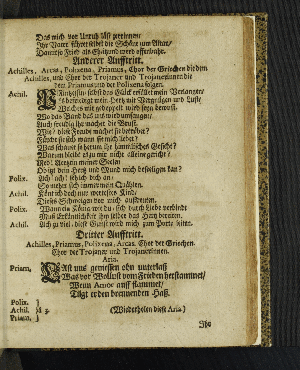 Das mich vor Unruh läst zerrinnen.
Ihr Vater führet selbst die Schöne zum Altar/
Damit ihr Fried als Ehstand werd offenbahr.
Anderer Aufftritt.
Achilles, Arcas, Polixena, Priamus, Chor der Griechen die dem
Achilles, und Chor der Trojaner und Trojanerinnen die
dem Priamus und der Polixena folgen.
Achil. selbst das Glück erfüllt mein Verlangen/
befriedigt mein Hertz mit Vergnügen und Lust/
Welches mir gedoppelt wird seyn bewust.
Wo das Band das uns wird umfangen/
Auch freudig ihr machet die Brust.
Wie? diese Freude machet sie betrübt?
Fürcht sie sich wann sie mich liebet?
Was schauet sie herum ihr himmlisches Gesicht?
Warum bleibt es zu mir nicht alleine gericht?
Red! Meisterin meiner Seelen!
Ob ihr dein Hertz und Mund mich beseeligen kan?
Polix. Ach! ach! schickt dich an/
So mehr sich immer mein Quählen.
Achil. Könt sich doch nur verstellen Kind/
Dieses Schweigen vor mich ausdeuten.
Polix. Wann ein König wie du/ sich durch Liebe verbindt
Muß Erkäntlichkeit ihm selbst das Hertz bereiten.
Achil. Ach zu viel/ diese Gunst wird mich zum Porte leiten.
Dritter Aufftritt.
Achilles, Priamus, Polixena, Arcas. Chor der Griechen.
Chor der Trojaner und Trojanerinnen.
Aria.
Priam. LAst uns geniessen ohn unterlaß
Was vor Wollust vom Frieden herstammet/
Wenn Amor auff flammet/
Tilgt er den brennenden Haß.
Polix.
Achil. à 3. (Wiederholen diese Aria)
Priam.
Ihr